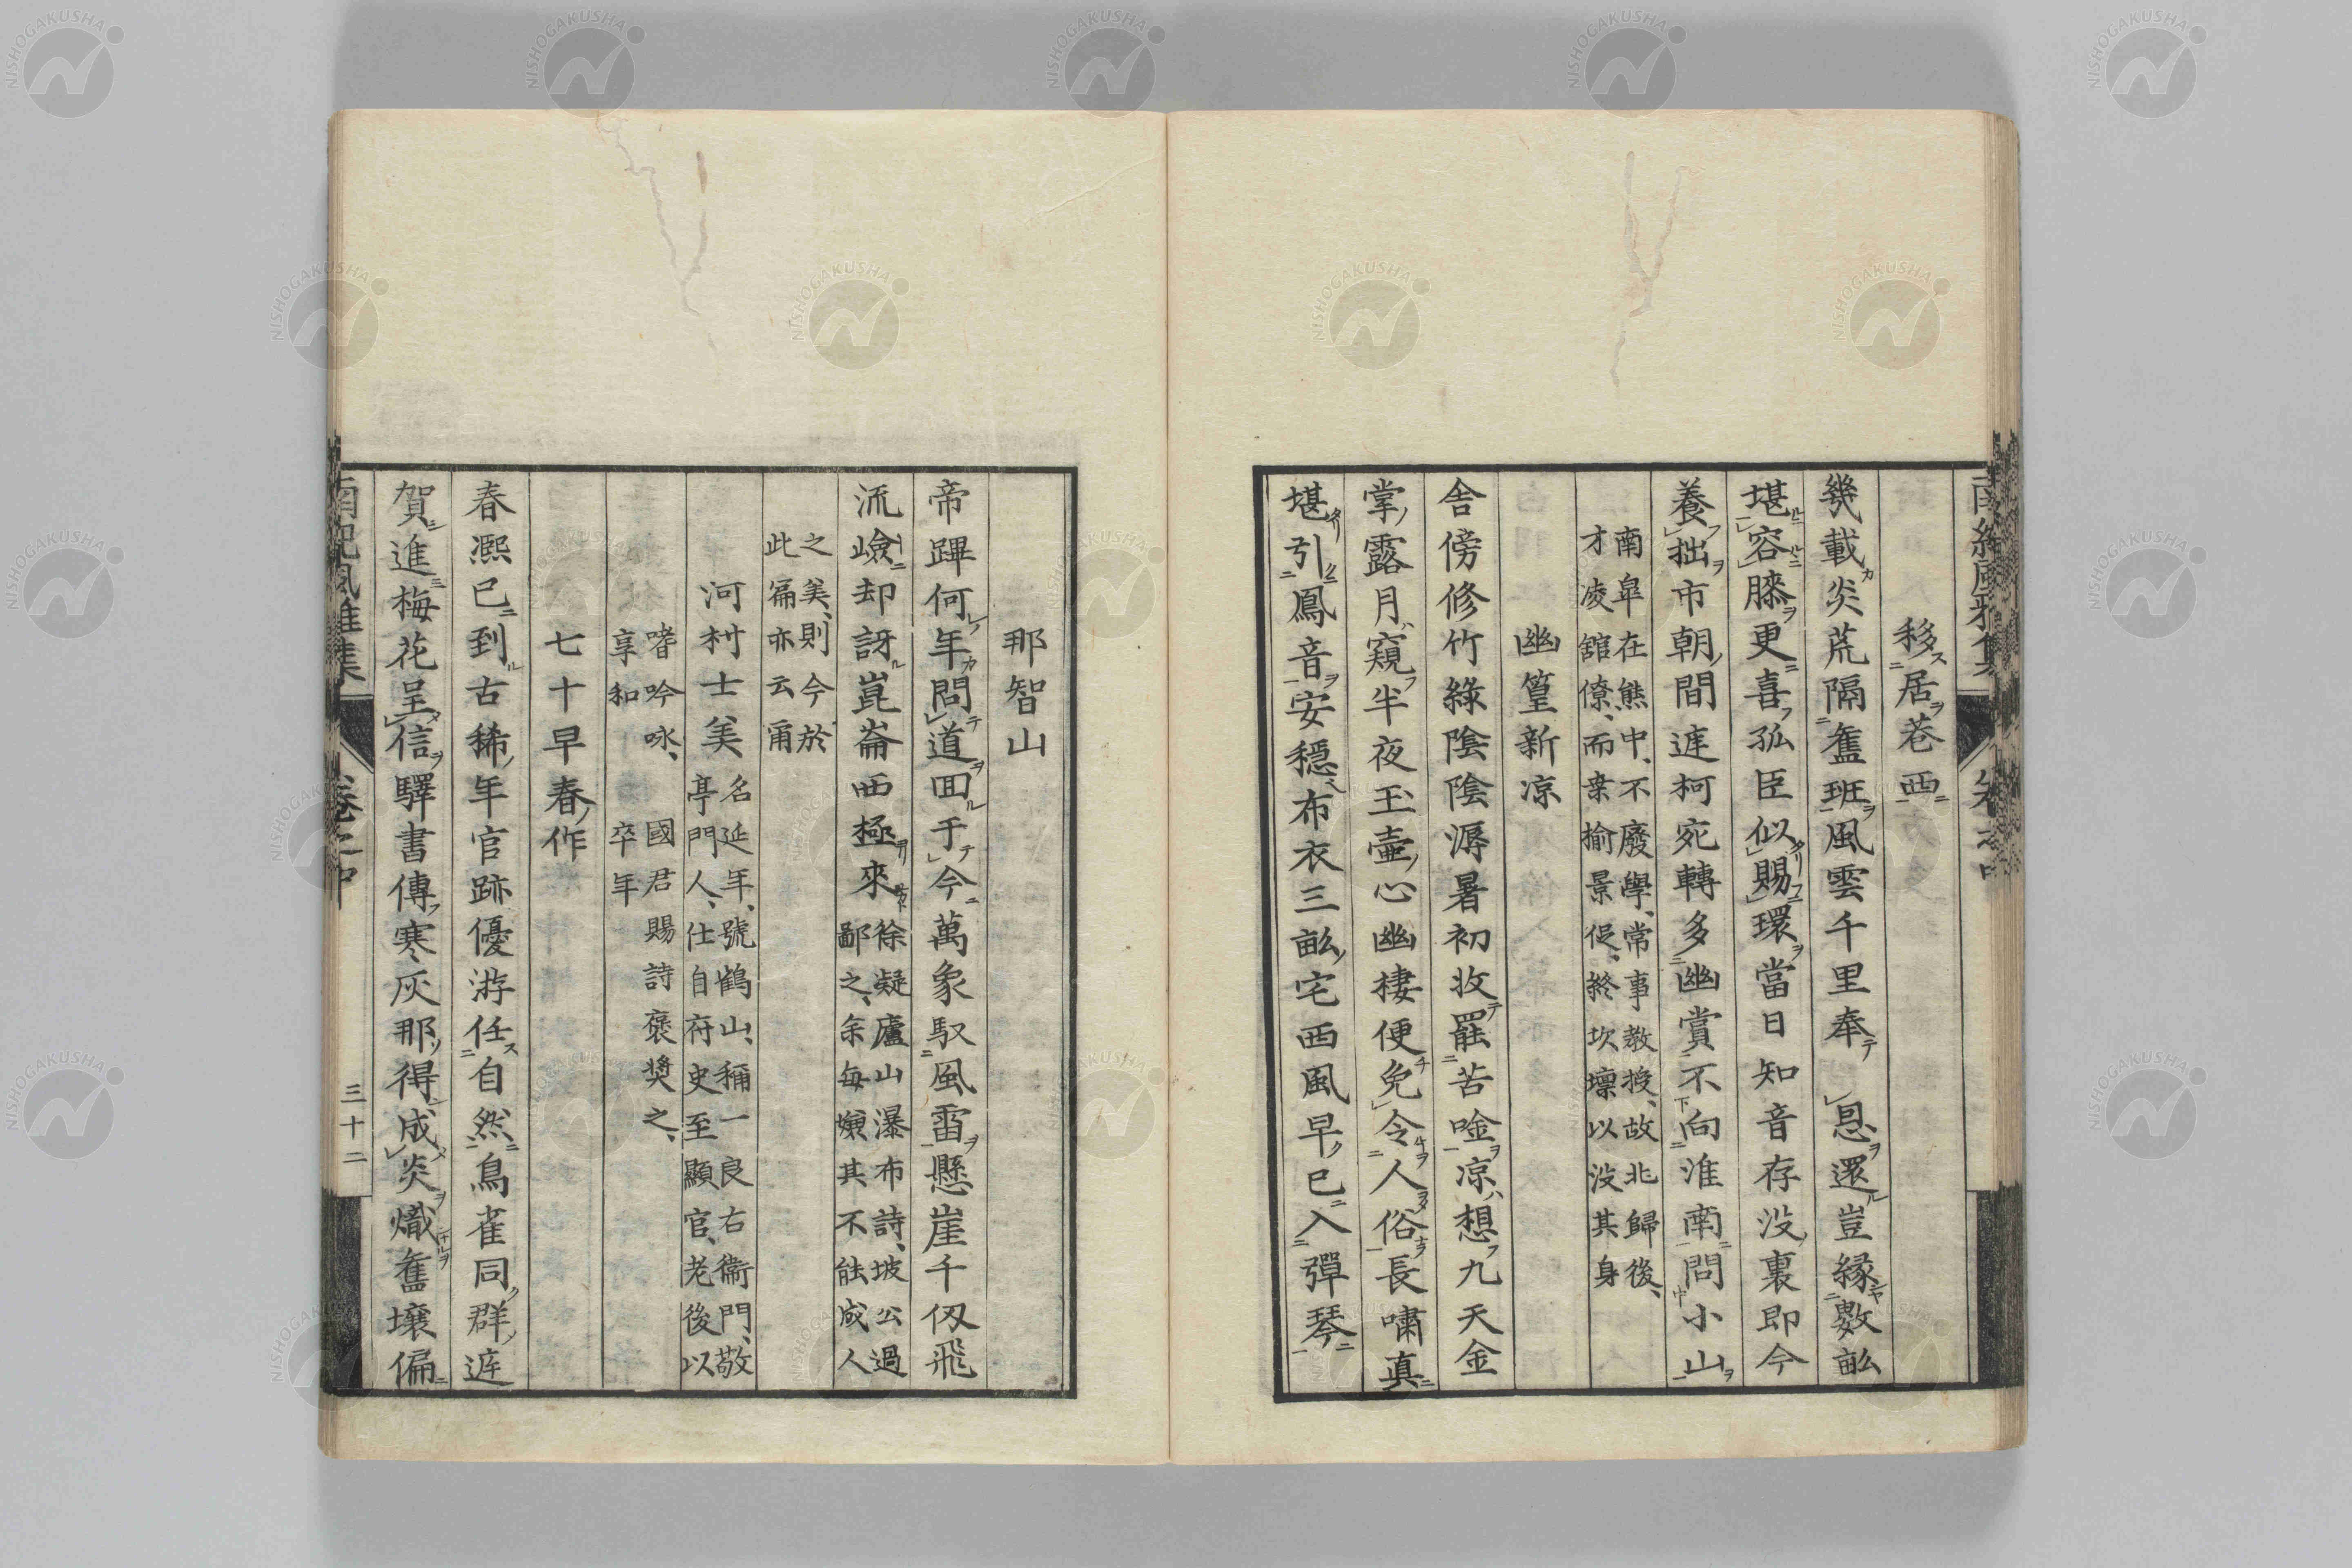 移居巷西
幾載炎荒隔舊班風雲千里奉恩還豈縁數畝
堪容膝更喜孤臣似賜環當日知音存沒裏即今
養拙市朝間遅柯宛轉多幽賞不向淮南問小山
南皐在熊中、不廢學、常事教授、故北歸後、
才凌舘僚、而桒揄景促、終坎壈以沒其身
幽篁新涼
舍傍修竹綠陰陰潯暑初收罷苦唫凉想九天金
掌露月窺半夜玉壷心幽棲便免令人俗長嘯真
堪引鳳音安穩布衣三畝宅西風早已入彈琴
那智山
帝蹕何年問道囬于今萬象馭風雷懸崖千仭飛
流嶮却訝崑崙西極來
徐凝廬山瀑布詩、坡公過
鄙之、余毎嫌其不能成人
之美、則今於
此篇亦云爾
河村士美
名延年、號鶴山、稱一良右衞門、敬
亭門人、仕自府史至顯官、老後以
嗜吟咏、國君賜詩褒奬之、
享和 卒年
七十早春作
春凞已到古稀年官跡優游任自然鳥雀同群遅
賀進梅花呈信驛書傳寒灰那得成炎熾舊壤偏
南紀風雅集 卷之中 三十二
NISHOGAKUSHA